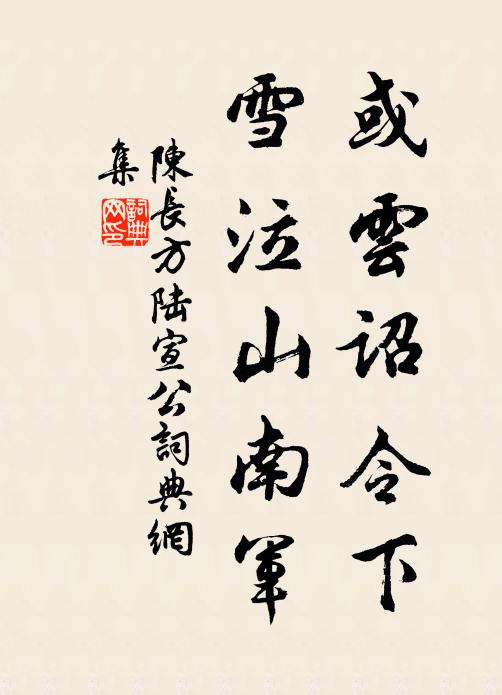 或雲詔令下
雪泣山南軍
陳長方陸宣公詞典網
集
詞典
网印